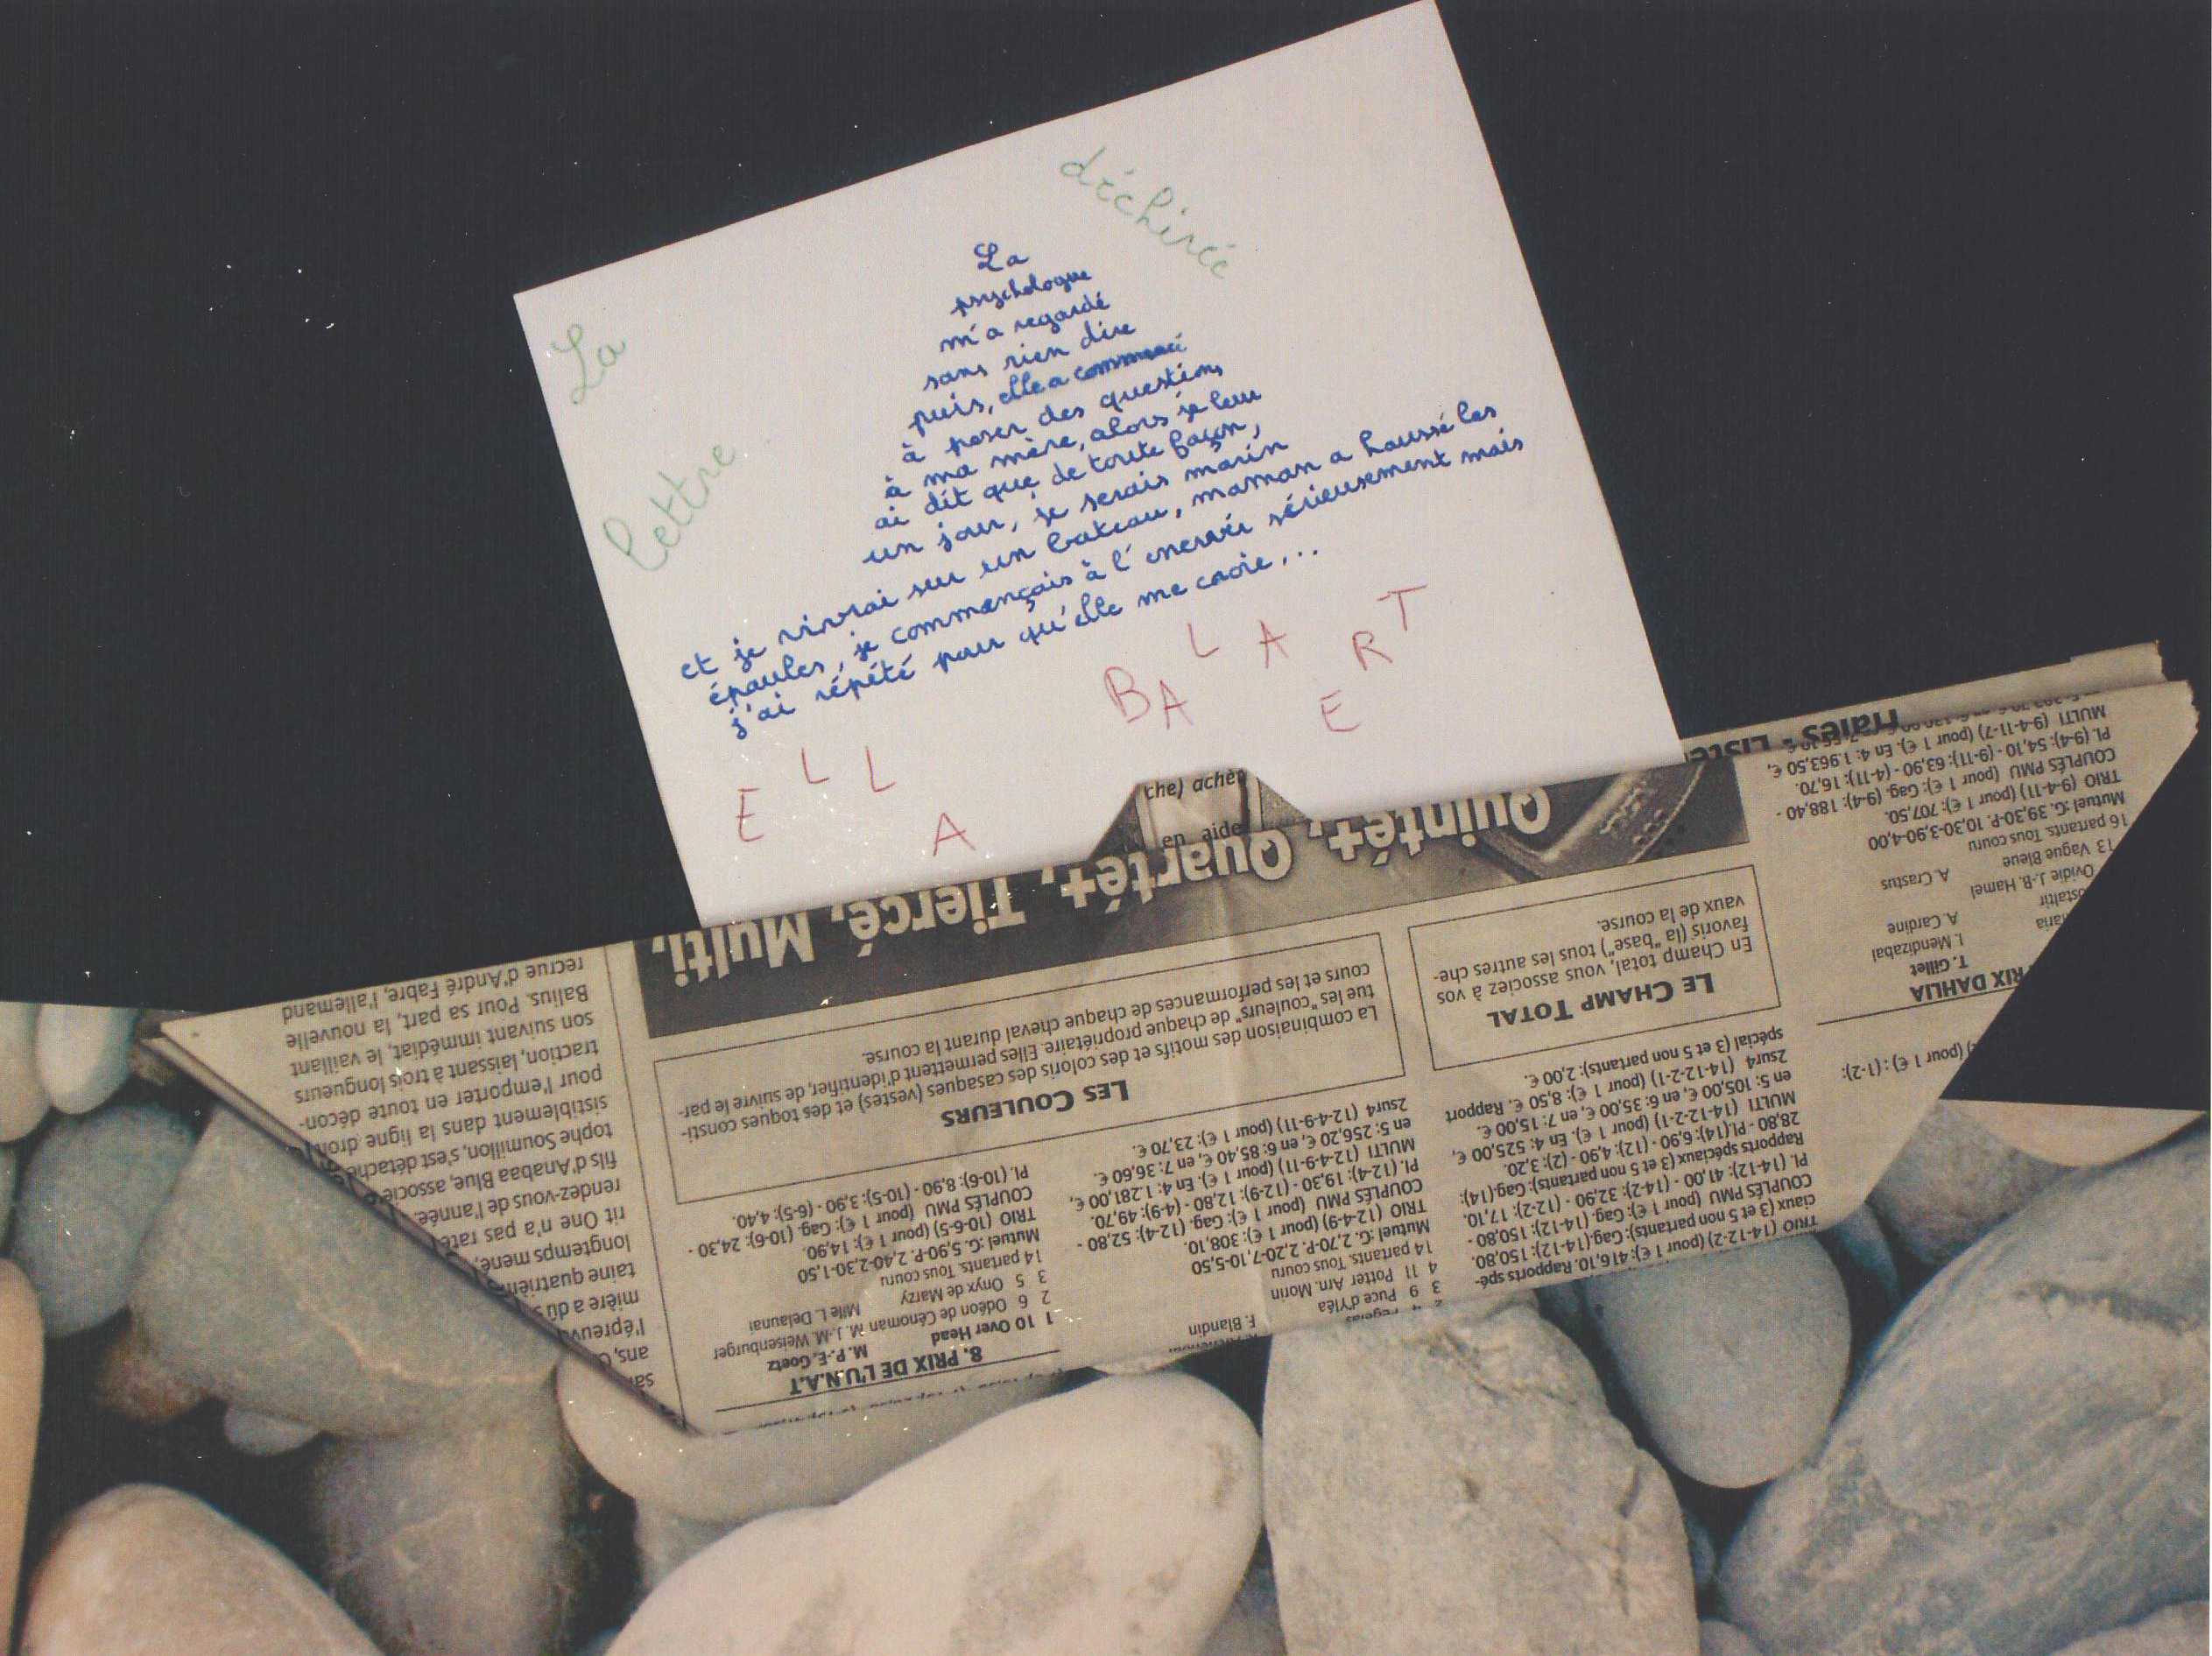 La
lettre
déchirée
La
psychologue
m'a regardé
sans rien dire
puis, elle a commencé
à poser des questions
à ma mère, alors je leur
ai dit que, de toute façon,
un jour, je serais marin
et je vivrai sur un bateau, maman a haussé les
épaules, je commençais à l'énerver sérieusement mais
j'ai répété pour qu'elle me croie...
ELLA
BALAERT
che) achè
en aide
Quinté+, Quarté+, Tiercé, Multi,
recrue d'André Fabre, l'allemand
Balius. Pour sa part, la nouvelle
son suivant immédiat, le vaillant
traction, laissant à trois longueurs
pour l'emporter en toute décon-
sistiblement dans la ligne droite
tophe Soumillon, s'est détaché
fils d'Anabaa Blue, associé
rendez-vous de l'année.
rit One n'a pas raté
longtemps mené,
taine quatrièm
mière a du s
l'épreuv
ans,
8. PRIX DE L'U.N.A.T
1 10 Over Head M. P.-E. Goetz
2 6 Odéon de Cénoman M. J.-M. Weisenburger
3 5 Onyx de Marzy Mlle L. Delaunai
14 partants. Tous couru
Mutuel : G. 5,90-P. 2,40-2,30-1,50
TRIO (10-6-5) (pour 1 €): 14,90.
COUPLÉS PMU (pour 1 €): Gag. (10-6): 24,30 -
Pl. (10-6): 8,90 - (10-5): 3,90 - (6-5): 4,40.
F. Blandin
3 9 Puce d'Yléa
4 11 Potter Arn. Morin
14 partants. Tous couru
Mutuel : G. 2,70-P. 2,20-7,10-5,50
TRIO (12-4-9) (pour 1 €): 308,10.
COUPLÉS PMU (pour 1 €): Gag. (12-4): 52,80 -
Pl. (12-4): 19,30 - (12-9): 12,80 - (4-9): 49,70.
MULTI (12-4-9-11) (pour 1 €). En 4: 1.281,00 €,
en 5: 256,20 €, en 6: 85,40 €, en 7: 36,60 €.
2sur4 (12-4-9-11) (pour 1 €): 23,70 €.
TRIO (14-12-2) (pour 1 €): 416,10. Rapports spé-
ciaux (3 et 5 non partants): Gag.(14-12): 150,80.
COUPLÉS PMU (pour 1 €): Gag. (14-12): 150,80 -
Pl. (14-12): 41,00 - (14-2): 32,90 - (12-2): 17,10.
Rapports spéciaux (3 et 5 non partants): Gag.(14):
28,80 - Pl.(14): 6,90 - (12): 4,90 - (2): 3,20.
MULTI (14-12-2-1) (pour 1 €). En 4: 525,00 €,
en 5: 105,00 €, en 6: 35,00 €, en 7: 15,00 €.
2sur4 (14-12-2-1) (pour 1 €): 8,50 €. Rapport
spécial (3 et 5 non partants): 2,00 €.
LES COULEURS
La combinaison des motifs et des coloris des casaques (vestes) et des toques consti-
tue les "couleurs" de chaque propriétaire. Elles permettent d'identifier, de suivre le par-
cours et les performances de chaque cheval durant la course.
LE CHAMP TOTAL
En Champ total, vous associez à vos
favoris (la "base") tous les autres che-
vaux de la course.
(pour 1 €) : (1-2):
PRIX DAHLIA
T. Gillet
I. Mendizabal
A. Cardine
Ovidie J.-B. Hamel
13 Vague Bleue A. Crastus
16 partants. Tous couru
Mutuel : G. 39,30-P. 10,30-3,90-4,00
TRIO (9-4-11) (pour 1 €): 707,50.
COUPLÉS PMU (pour 1 €): Gag. (9-4): 188,40 -
Pl. (9-4): 54,10 - (9-11): 63,90 - (4-11): 16,70.
MULTI (9-4-11-7) (pour 1 €). En 4: 1 963,50 €,